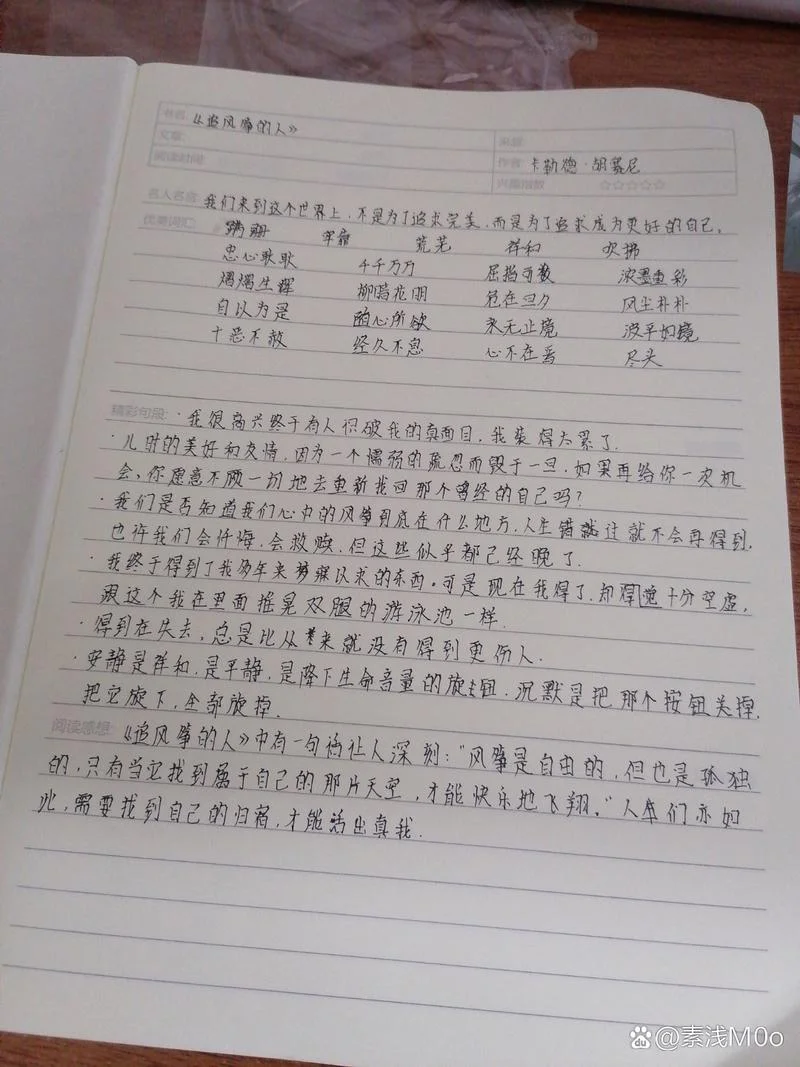 书名: 《追风筝的人》
文章: 来源:
阅读时间: 作者: 卡勒德·胡赛尼
内属指数 ☆☆☆☆☆
名人名言: 我们来到这个世界上,不是为了追求完美,而是为了追求成为更好的自己。
优美词汇: 蹒跚 牢靠 荒芜 祥和 吹拂
忠心耿耿 千千万万 屈指可数 浓墨重彩
熠熠生辉 柳暗花明 危在旦夕 风尘朴朴
自以为是 随心所欲 永无止境 波平如镜
十恶不赦 经久不息 心不在焉 尽头
精彩句段: ·我很高兴终于有人识破我的真面目,我装得太累了.
·儿时的美好和友情,因为一个懦弱的疏忽而毁于一旦,如果再给你一次机
会,你愿意不顾一切地去重新找回那个曾经的自己吗?
·我们是否知道我们心中的风筝到底在什么地方,人生错就过就不会再得到,
也许我们会忏悔,会救赎,但这些似乎都已经晚了.
·我终于得到了我多年来梦寐以求的东西。可是现在我得了,却得觉十分空虚,
跟这个我在里面摇晃双腿的游泳池一样.
·得到在失去,总是比从来就没有得到更伤人.
·安静是祥和,是平静,是降下生命音量的旋钮,沉默是把那个按钮关掉,
把它旋下,全部旋掉.
阅读感想: 《追风筝的人》中有一句话让人深刻:"风筝是自由的,但也是孤独
的,只有当它找到属于自己的那片天空,才能快乐地飞翔。"人们亦如
此,需要找到自己的归宿,才能活出真我.
@素浅M0o